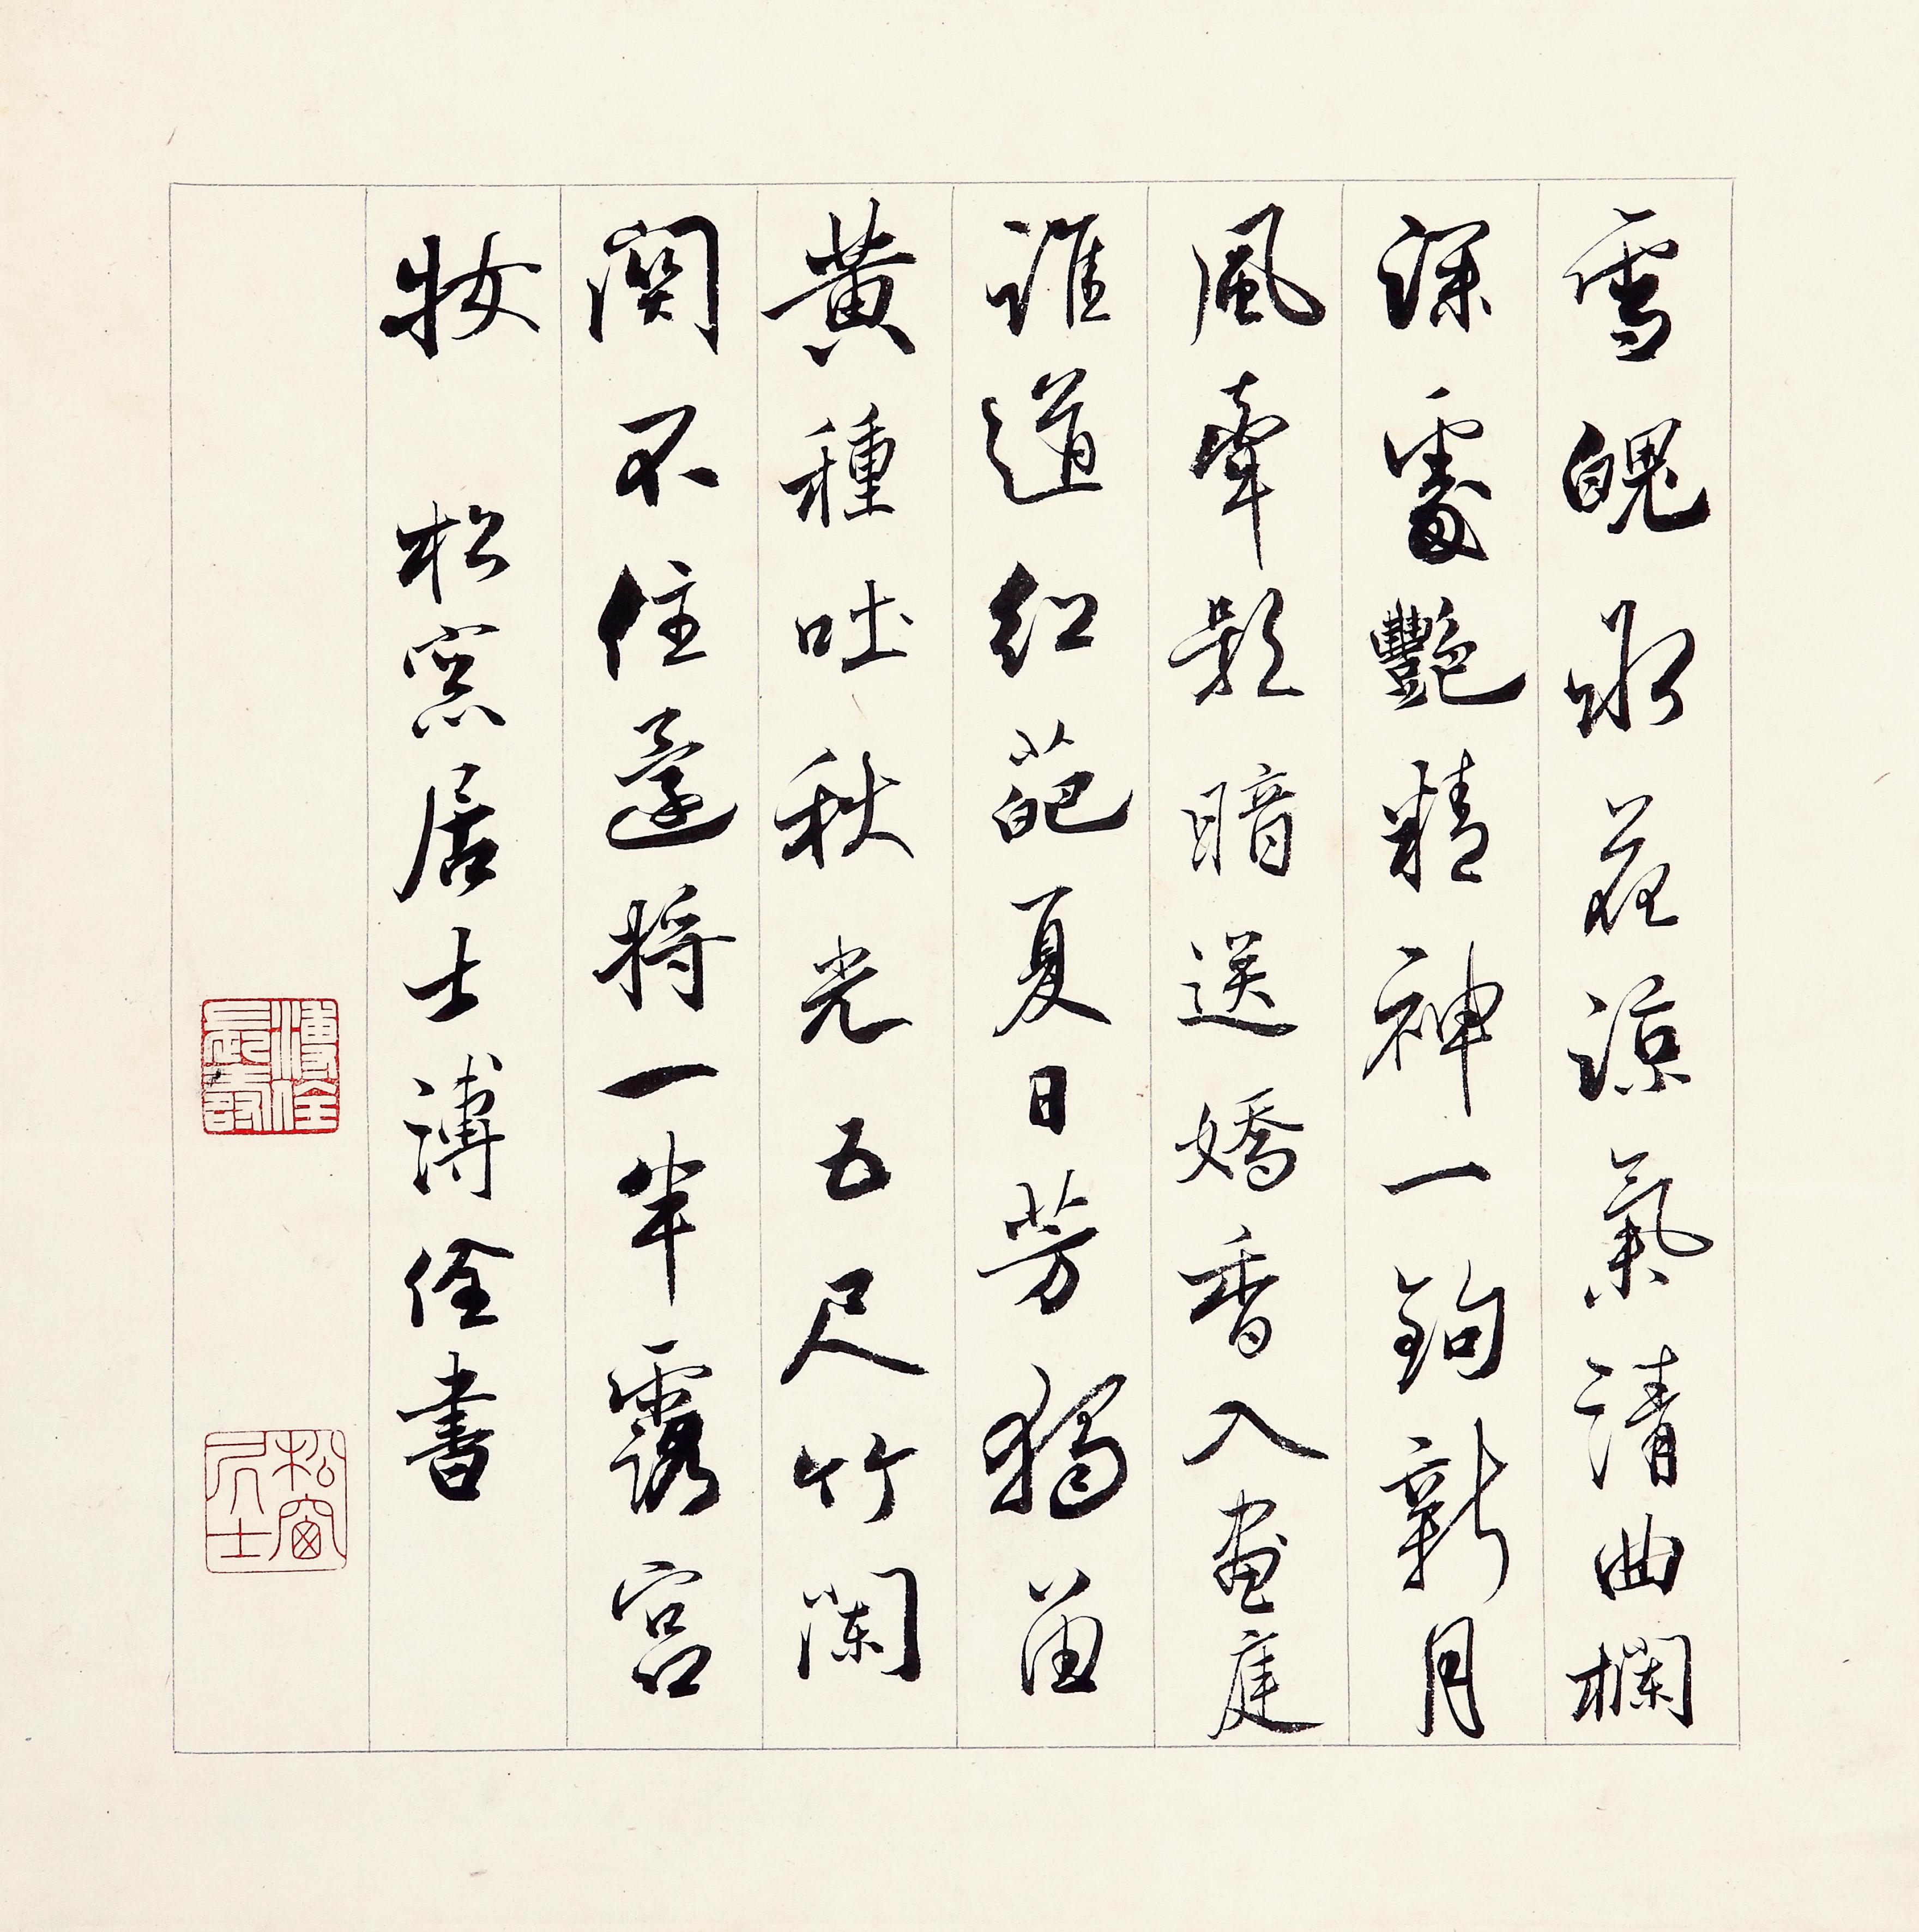 雪魄冰花涼氣清曲欄
深處艷精神一鉤新月
風牽影暗送嬌香入畫庭
誰道紅葩夏日芳獨留
黃種吐秋光五尺竹闌
關不住還將一半露宮
妝 松窗居士溥佺書
溥佺長壽
松窗居士